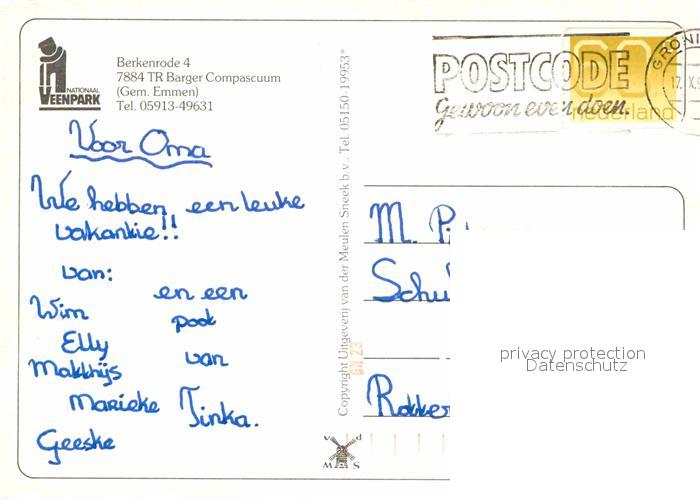 NATIONAAL
VEENPARK
Berkenrode 4
7884 TR Barger Compascuum
(Gem. Emmen)
Tel. 05913-49631
POSTCODE
Gewoon even doen.
nederland
GRONI
17. X
Voor Oma
We hebben een leuke
vakantie!!
van:
Wim
Elly
Matthijs
Marieke
Geeske
en een
poot
van
Tinka.
Copyright Uitgeverij van der Meulen Sneek b.v., Tel. 05150-19953*
M. Pi
Schu
Rotter
privacy protection
Datenschutz
v d
M S